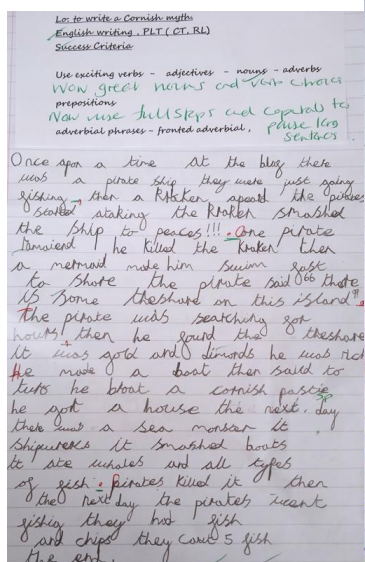 Lo: to write a Cornish myth.
English writing, PLT ( CT, RL)
Success Criteria
Use exciting verbs - adjectives - nouns - adverbs
Wow great nouns and verb choices
prepositions
Now use full stops and capitals to
adverbial phrases - fronted adverbial, pause long
sentences.
Once apon a time at the blug there
was a pirate ship they were just going
fishing, then a Kracken apeard the pirates
started ataking the Kraken smashed
the ship to peaces!!! . One pirate
ramaiend he killed the Kraken then
a mermaid made him swim fast
to shore the pirate said 66 there
is some theshare on this island 99.
The pirate was searching for
hours then he found the theshare
it was gold and dimords he was rich
He made a boat then saild to
turo he bloat a cornish pastie
sp
he got a house the next day
there was a sea monser it
shipwrecks it smashed boats
it ate whales and all types
of fish. Pirates killed it then
the next day the pirates went
fishig they had fish
and chips they cort 5 fish
the end.